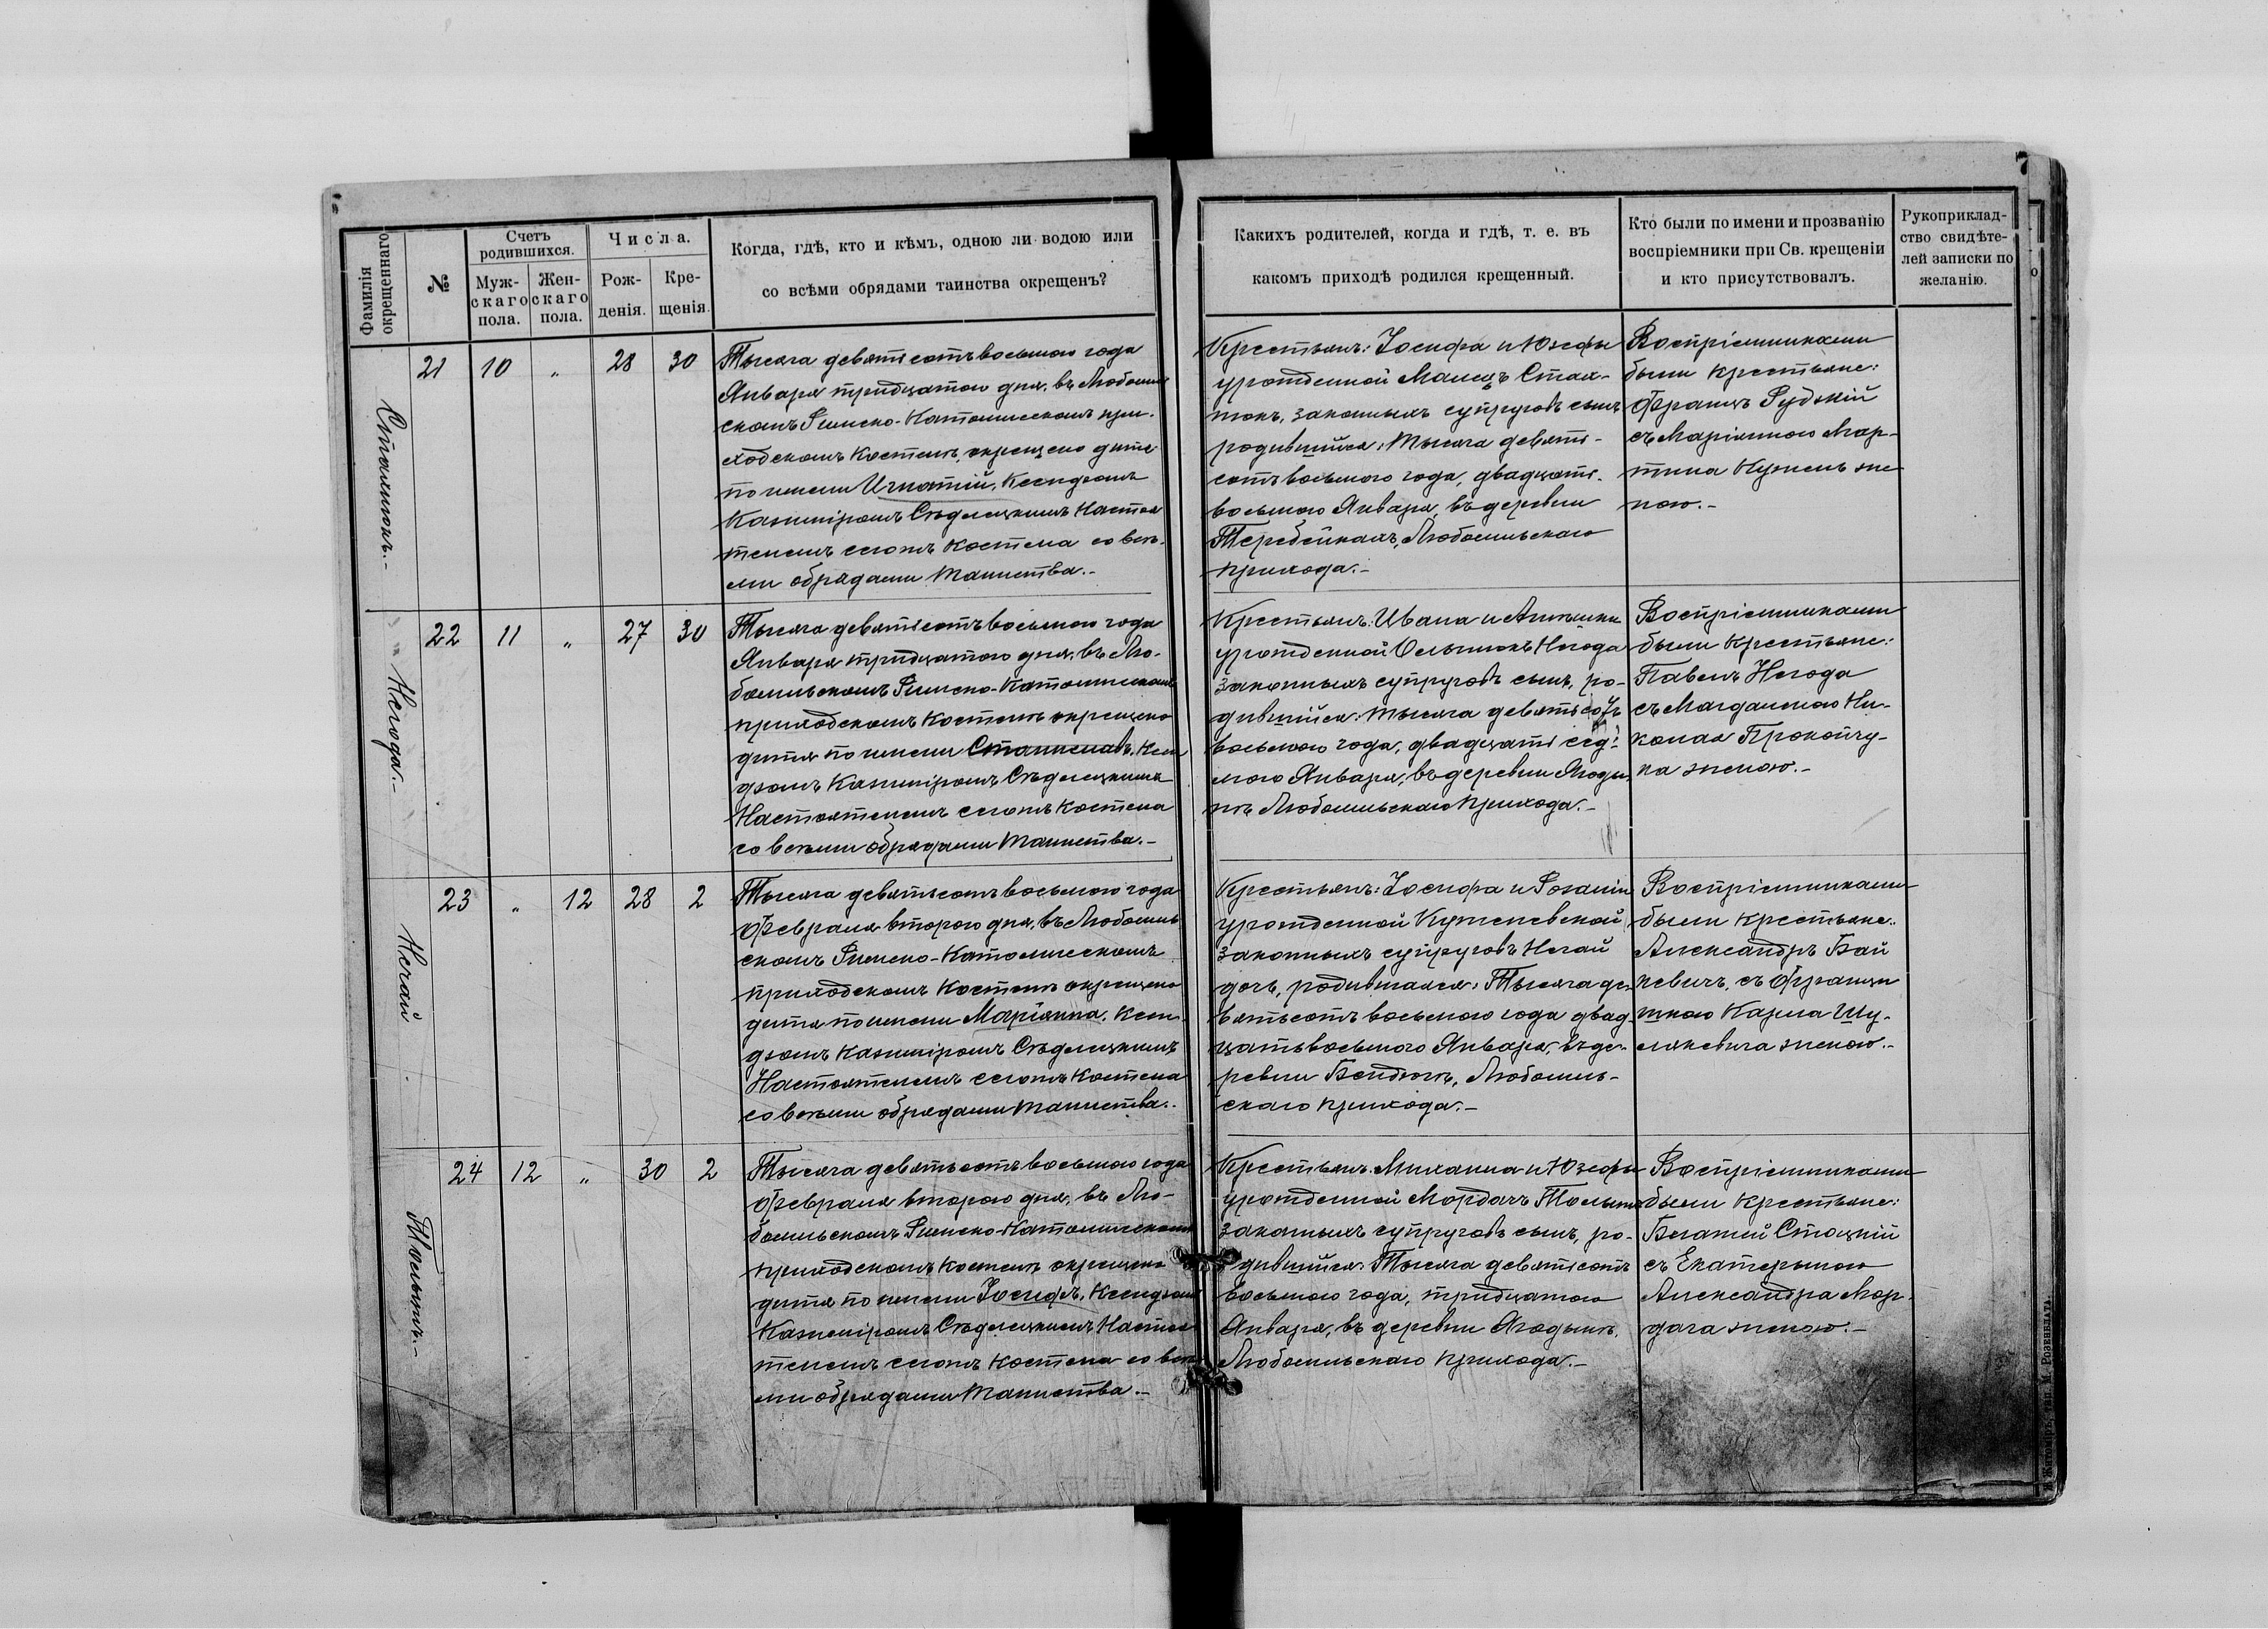 7
Фамилія
окрещеннаго
№
Счетъ
родившихся.
Муж-
скаго
пола.
Жен-
скаго
пола.
Числа.
Рож-
денія.
Кре-
щенія.
Когда, гдѣ, кто и кѣмъ, одною ли водою или
со всѣми обрядами таинства окрещенъ?
Какихъ родителей, когда и гдѣ, т. е. въ
какомъ приходѣ родился крещенный.
Кто были по имени и прозванію
воспріемники при Св. крещеніи
и кто присутствовалъ.
Рукоприклад-
ство свидѣте-
лей записки по
желанію.
21 10 „ 28 30
Тысяча девятьсотъ восьмого года
Января тридцатого дня, въ Любомль
скомъ Римско-Католическомъ при-
ходскомъ Костелѣ, окрещено дитя
по имени Игнатій, Ксендзомъ
Казимиромъ Сѣдлецкимъ Настоя
телемъ сего Костела со всѣ-
ми обрядами Таинства.-
Крестьянъ: Іосифа и Юзефы
урожденной Малецъ Стал-
законныхъ супруговъ сынъ
родившійся: Тысяча девять-
сотъ восьмого года, двадцать-
восьмого Января, въ деревни
Теребейкахъ, Любомльскаго
прихода.-
Воспріемниками
были Крестьяне:
Францъ Рудскій
съ Маріянною Мар-
тина Кужель же-
ною.-
22 11 „ 27 30
Негода.-
Тысяча девятьсотъ восьмого года
Января тридцатого дня, въ Лю-
бомльскомъ Римско-Католическомъ
приходскомъ Костелѣ окрещено
дитя по имени Станиславъ, Ксен
дзомъ Казимиромъ Сѣдлецкимъ
Настоятелемъ сего Костела
со всѣми обрядами Таинства.-
Крестьянъ: Ивана и
урожденной Негода
законныхъ супруговъ сынъ, ро-
дившійся: тысяча девятьсотъ
восьмого года, двадцать седь-
мого Января, въ деревни Ягоды
нѣ Любомльскаго прихода.-
Воспріемниками
были Крестьяне:
Павелъ Негода
съ Магдаленою Ни-
колая Прокопчу-
ка женою.-
23 „ 12 28 2
Нечай
Тысяча девятьсотъ восьмого года
Февраля второго дня, въ Любомль
скомъ Римско-Католическомъ
приходскомъ Костелѣ окрещено
дитя по имени Маріянна, Ксен-
дзомъ Казимиромъ Сѣдлецкимъ
Настоятелемъ сего Костела
со всѣми обрядами Таинства.
Крестьянъ: Іосифа и Розаліи
урожденной Кужелевской
законныхъ супруговъ Нечай
дочь, родившаяся: Тысяча де-
вятьсотъ восьмого года двад-
цать восьмого Января, въ де-
ревни Бендюгѣ, Любомль-
скаго прихода.-
Воспріемниками
были Крестьяне:
Александръ Бай
кевичъ, съ Францы
шкою Карла Шу-
лякевича женою.-
24 12 „ 30 2
Тысяча девятьсотъ восьмого года
Февраля второго дня, въ Лю-
бомльскомъ Римско-Католическомъ
приходскомъ Костелѣ окрещено
дитя по имени Іосифъ, Ксендзомъ
Казимиромъ Сѣдлецкимъ Настоя
телемъ сего Костела со всѣ
ми обрядами Таинства.-
Крестьянъ: Михаила и Юзефы
урожденной Мордачъ
законныхъ супруговъ сынъ, ро-
дившійся: Тысяча девятьсотъ
восьмого года, тридцатого
Января, въ деревни Ягодынѣ,
Любомльскаго прихода.-
Воспріемниками
были Крестьяне:
Стоцкій
съ Екатериною
Александра Мор-
дача женою.-